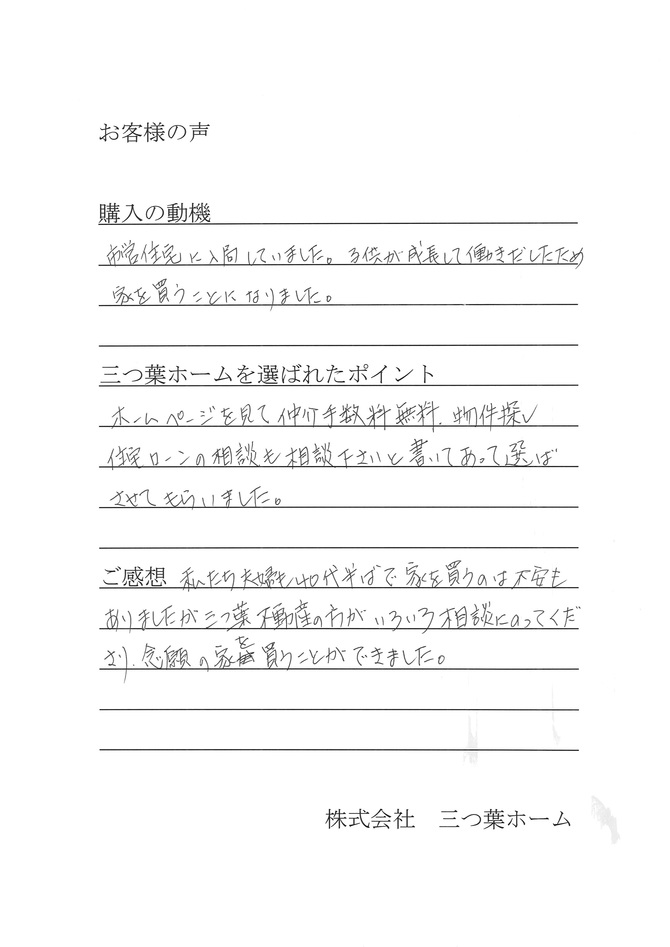 お客様の声
購入の動機
市営住宅に入居していました。子供が成長して働きだしたため
家を買うことになりました。
三つ葉ホームを選ばれたポイント
ホームページを見て仲介手数料無料、物件探し
住宅ローンの相談も相談下さいと書いてあって選ば
させてもらいました。
ご感想 私たち夫婦も40代半ばで家を買うのは不安も
ありましたが三つ葉不動産の方がいろいろ相談にのってくだ
さり、念願の家を買うことができました。
株式会社 三つ葉ホーム